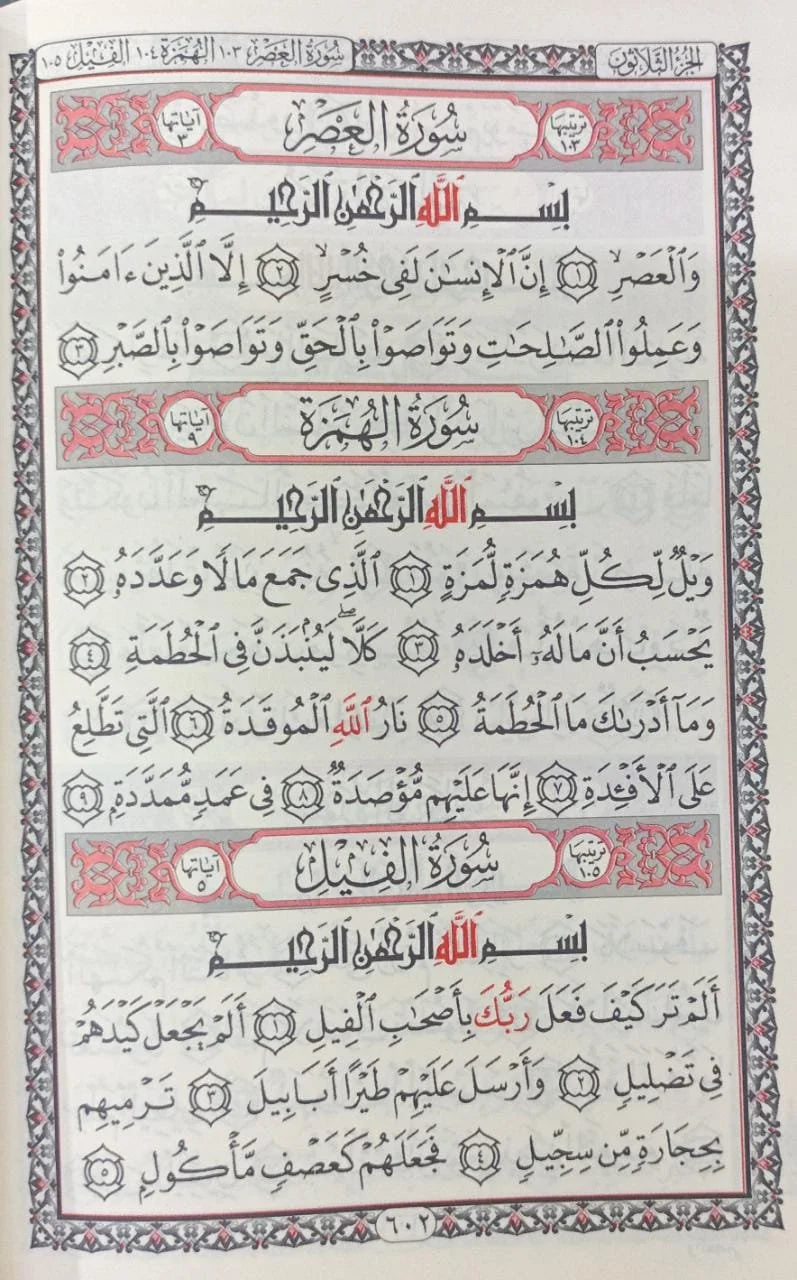 سُورَةُ العَصْرِ ١٠٣ الهُمَزَة ١٠٤ الفِيل ١٠٥
الجُزْءُ الثَّلَاثُون
ترتيبها ١٠٣ سُورَةُ العَصْرِ آياتها ٣
بِسْمِ ٱللَّهِ ٱلرَّحْمَٰنِ ٱلرَّحِيمِ
وَٱلْعَصْرِ ١ إِنَّ ٱلْإِنسَٰنَ لَفِى خُسْرٍ ٢ إِلَّا ٱلَّذِينَ ءَامَنُوا۟
وَعَمِلُوا۟ ٱلصَّٰلِحَٰتِ وَتَوَاصَوْا۟ بِٱلْحَقِّ وَتَوَاصَوْا۟ بِٱلصَّبْرِ ٣
ترتيبها ١٠٤ سُورَةُ الهُمَزَة آياتها ٩
بِسْمِ ٱللَّهِ ٱلرَّحْمَٰنِ ٱلرَّحِيمِ
وَيْلٌ لِّكُلِّ هُمَزَةٍ لُّمَزَةٍ ١ ٱلَّذِى جَمَعَ مَالًا وَعَدَّدَهُۥ ٢
يَحْسَبُ أَنَّ مَالَهُۥٓ أَخْلَدَهُۥ ٣ كَلَّا ۖ لَيُنۢبَذَنَّ فِى ٱلْحُطَمَةِ ٤
وَمَآ أَدْرَىٰكَ مَا ٱلْحُطَمَةُ ٥ نَارُ ٱللَّهِ ٱلْمُوقَدَةُ ٦ ٱلَّتِى تَطَّلِعُ
عَلَى ٱلْأَفْـِٔدَةِ ٧ إِنَّهَا عَلَيْهِم مُّؤْصَدَةٌ ٨ فِى عَمَدٍ مُّمَدَّدَةٍۭ ٩
ترتيبها ١٠٥ سُورَةُ الفِيلِ آياتها ٥
بِسْمِ ٱللَّهِ ٱلرَّحْمَٰنِ ٱلرَّحِيمِ
أَلَمْ تَرَ كَيْفَ فَعَلَ رَبُّكَ بِأَصْحَٰبِ ٱلْفِيلِ ١ أَلَمْ يَجْعَلْ كَيْدَهُمْ
فِى تَضْلِيلٍ ٢ وَأَرْسَلَ عَلَيْهِمْ طَيْرًا أَبَابِيلَ ٣ تَرْمِيهِم
بِحِجَارَةٍ مِّن سِجِّيلٍ ٤ فَجَعَلَهُمْ كَعَصْفٍ مَّأْكُولٍۭ ٥
٦٠٢